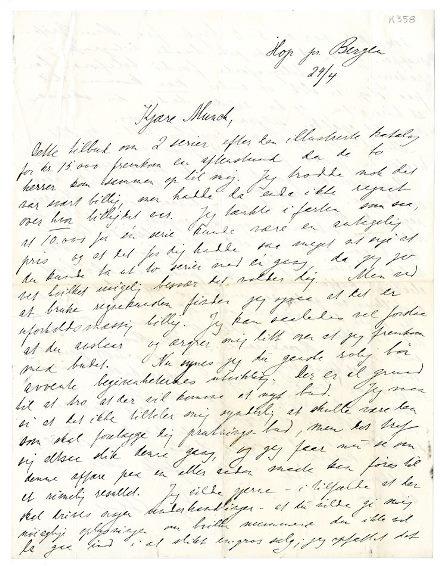 K358
Hop pr Bergen
24/4
Kjære Munch,
Dette tilbud om 2 serier efter den illustrerte katalog
for kr 15 000 fremkom en eftermiddag da de to
herrer kom sammen op til mig. Jeg trodde nok det
var svært billig, men hadde da endda ikke regnet
over hvor billig det var. Jeg tænkte i farten som saa,
at 10.000 for én serie kunde være en antagelig
pris og at det for dig hadde saa meget at si at
du kunde ta to serier med en gang da jeg jo
vet hvilket besvær det volder dig. Men ved
at bruke regnekunsten finder jeg ogsaa at det er
uforholdsmæssig billig. Jeg kan saaledes vel forstaa
at du avslaar og ærgrer mig litt over at jeg fremkom
med budet. Nu synes jeg du ganske rolig bør
avvente begivenhetenes utvikling. Der er al grund
til at tro at der vil komme et nyt bud. Jeg maa
si at det ikke tiltaler mig at skulle være den
som skal forelægge dig prutnings bud, men det traf
sig altsaa slik denne gang, og jeg faar nu se om
denne affære paa en eller anden maate kan føres til
et rimelig resultat. Jeg vilde gjerne - i tilfælde at der
skal drives nogen underhandlinger - at du vilde gi mig
nøiagtig oplysninger om hvilke nummere du ikke vil
la gaa ind i et slikt engros salg; jeg opfattet det